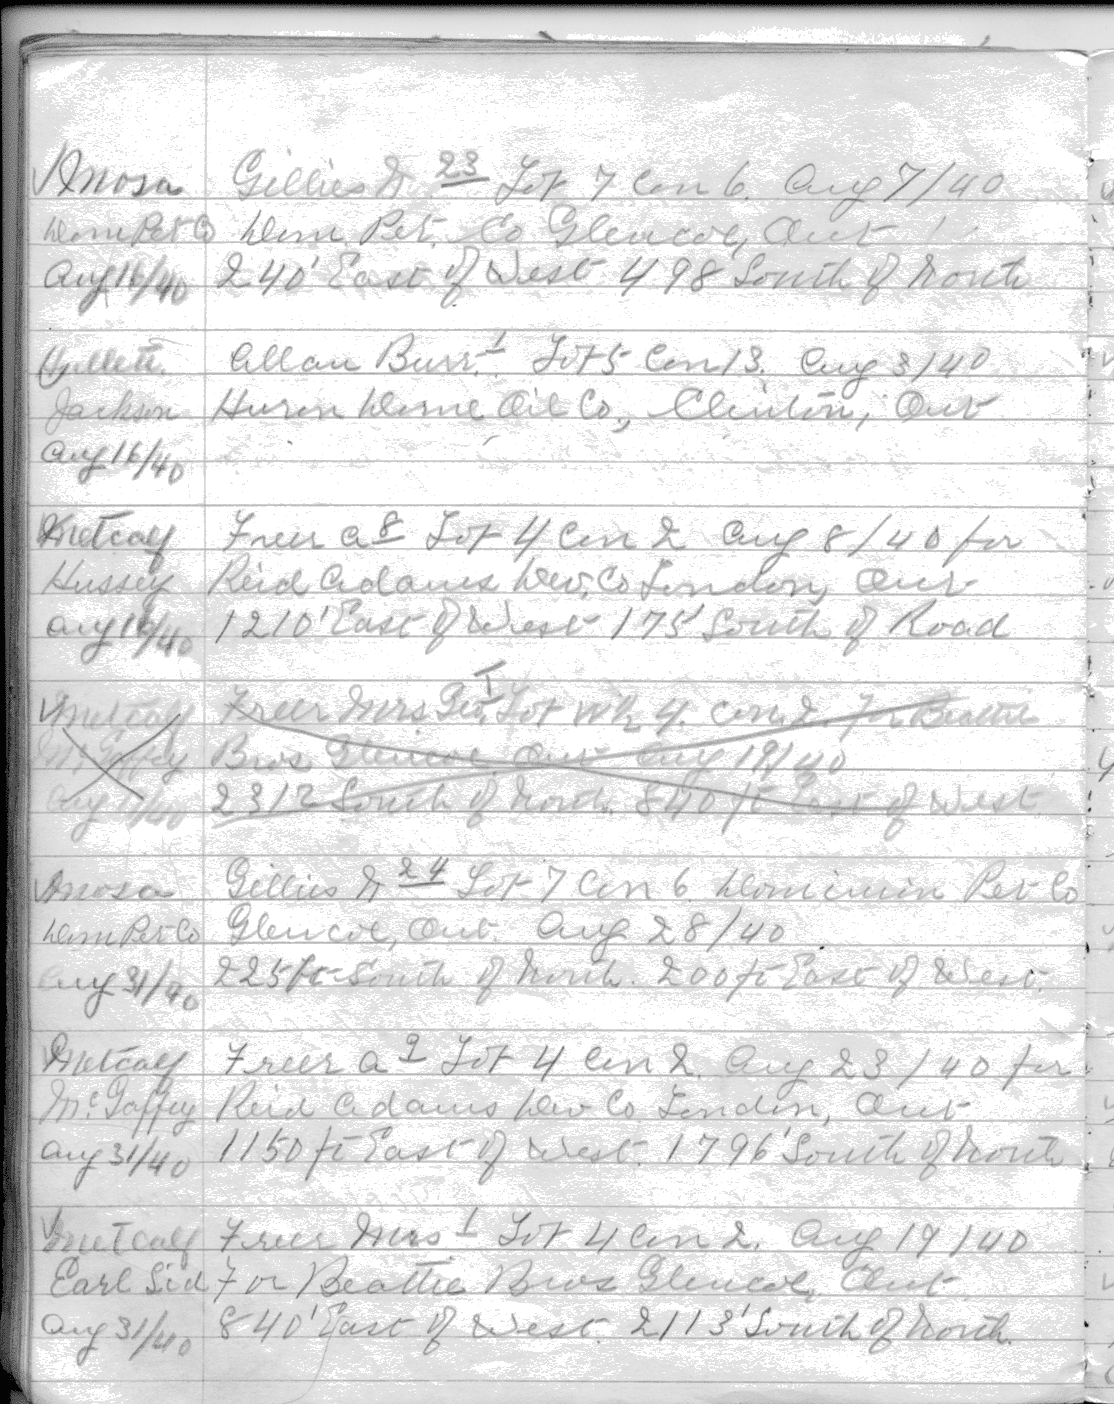 Mosa Gillies N 23 Lot 7 Con 6. Aug 7/40
Dom Pet Co Dom. Pet. Co Glencoe, Ont
Aug 16/40 240' East of West 498' South of North
Hullett Allan Burr. 1 Lot 5 Con 13. Aug 3/40
Jackson Huron Dome Oil Co, Clinton, Ont
Aug 16/40
Metcalf Freer A 8 Lot 4 Con 2 Aug 8/40 for
Hussey Reid Adams Dev. Co London, Ont
Aug 16/40 1210' East of West 175' South of Road
Metcalf Freer Mrs Geo. 1 Lot 4. Con. 2. For Beattie
McGaffey Bros Glencoe Ont Aug 19/40
Aug /40 2312 South of North. 840 ft East of West
Mosa Gillies N 24 Lot 7 Con 6. Dominion Pet Co
Dom Pet Co Glencoe, Ont. Aug 28/40
Aug 31/40 225 ft South of North. 200 ft East of West.
Metcalf Freer A 9 Lot 4 Con 2. Aug 23/40 for
McGaffey Reid Adams Dev Co London, Ont
Aug 31/40 1150 ft East of West. 1796' South of North
Metcalf Freer Mrs 1 Lot 4 Con 2. Aug 19/40
Earl Sid For Beattie Bros Glencoe, Ont
Aug 31/40 840' East of West. 2113' South of North.